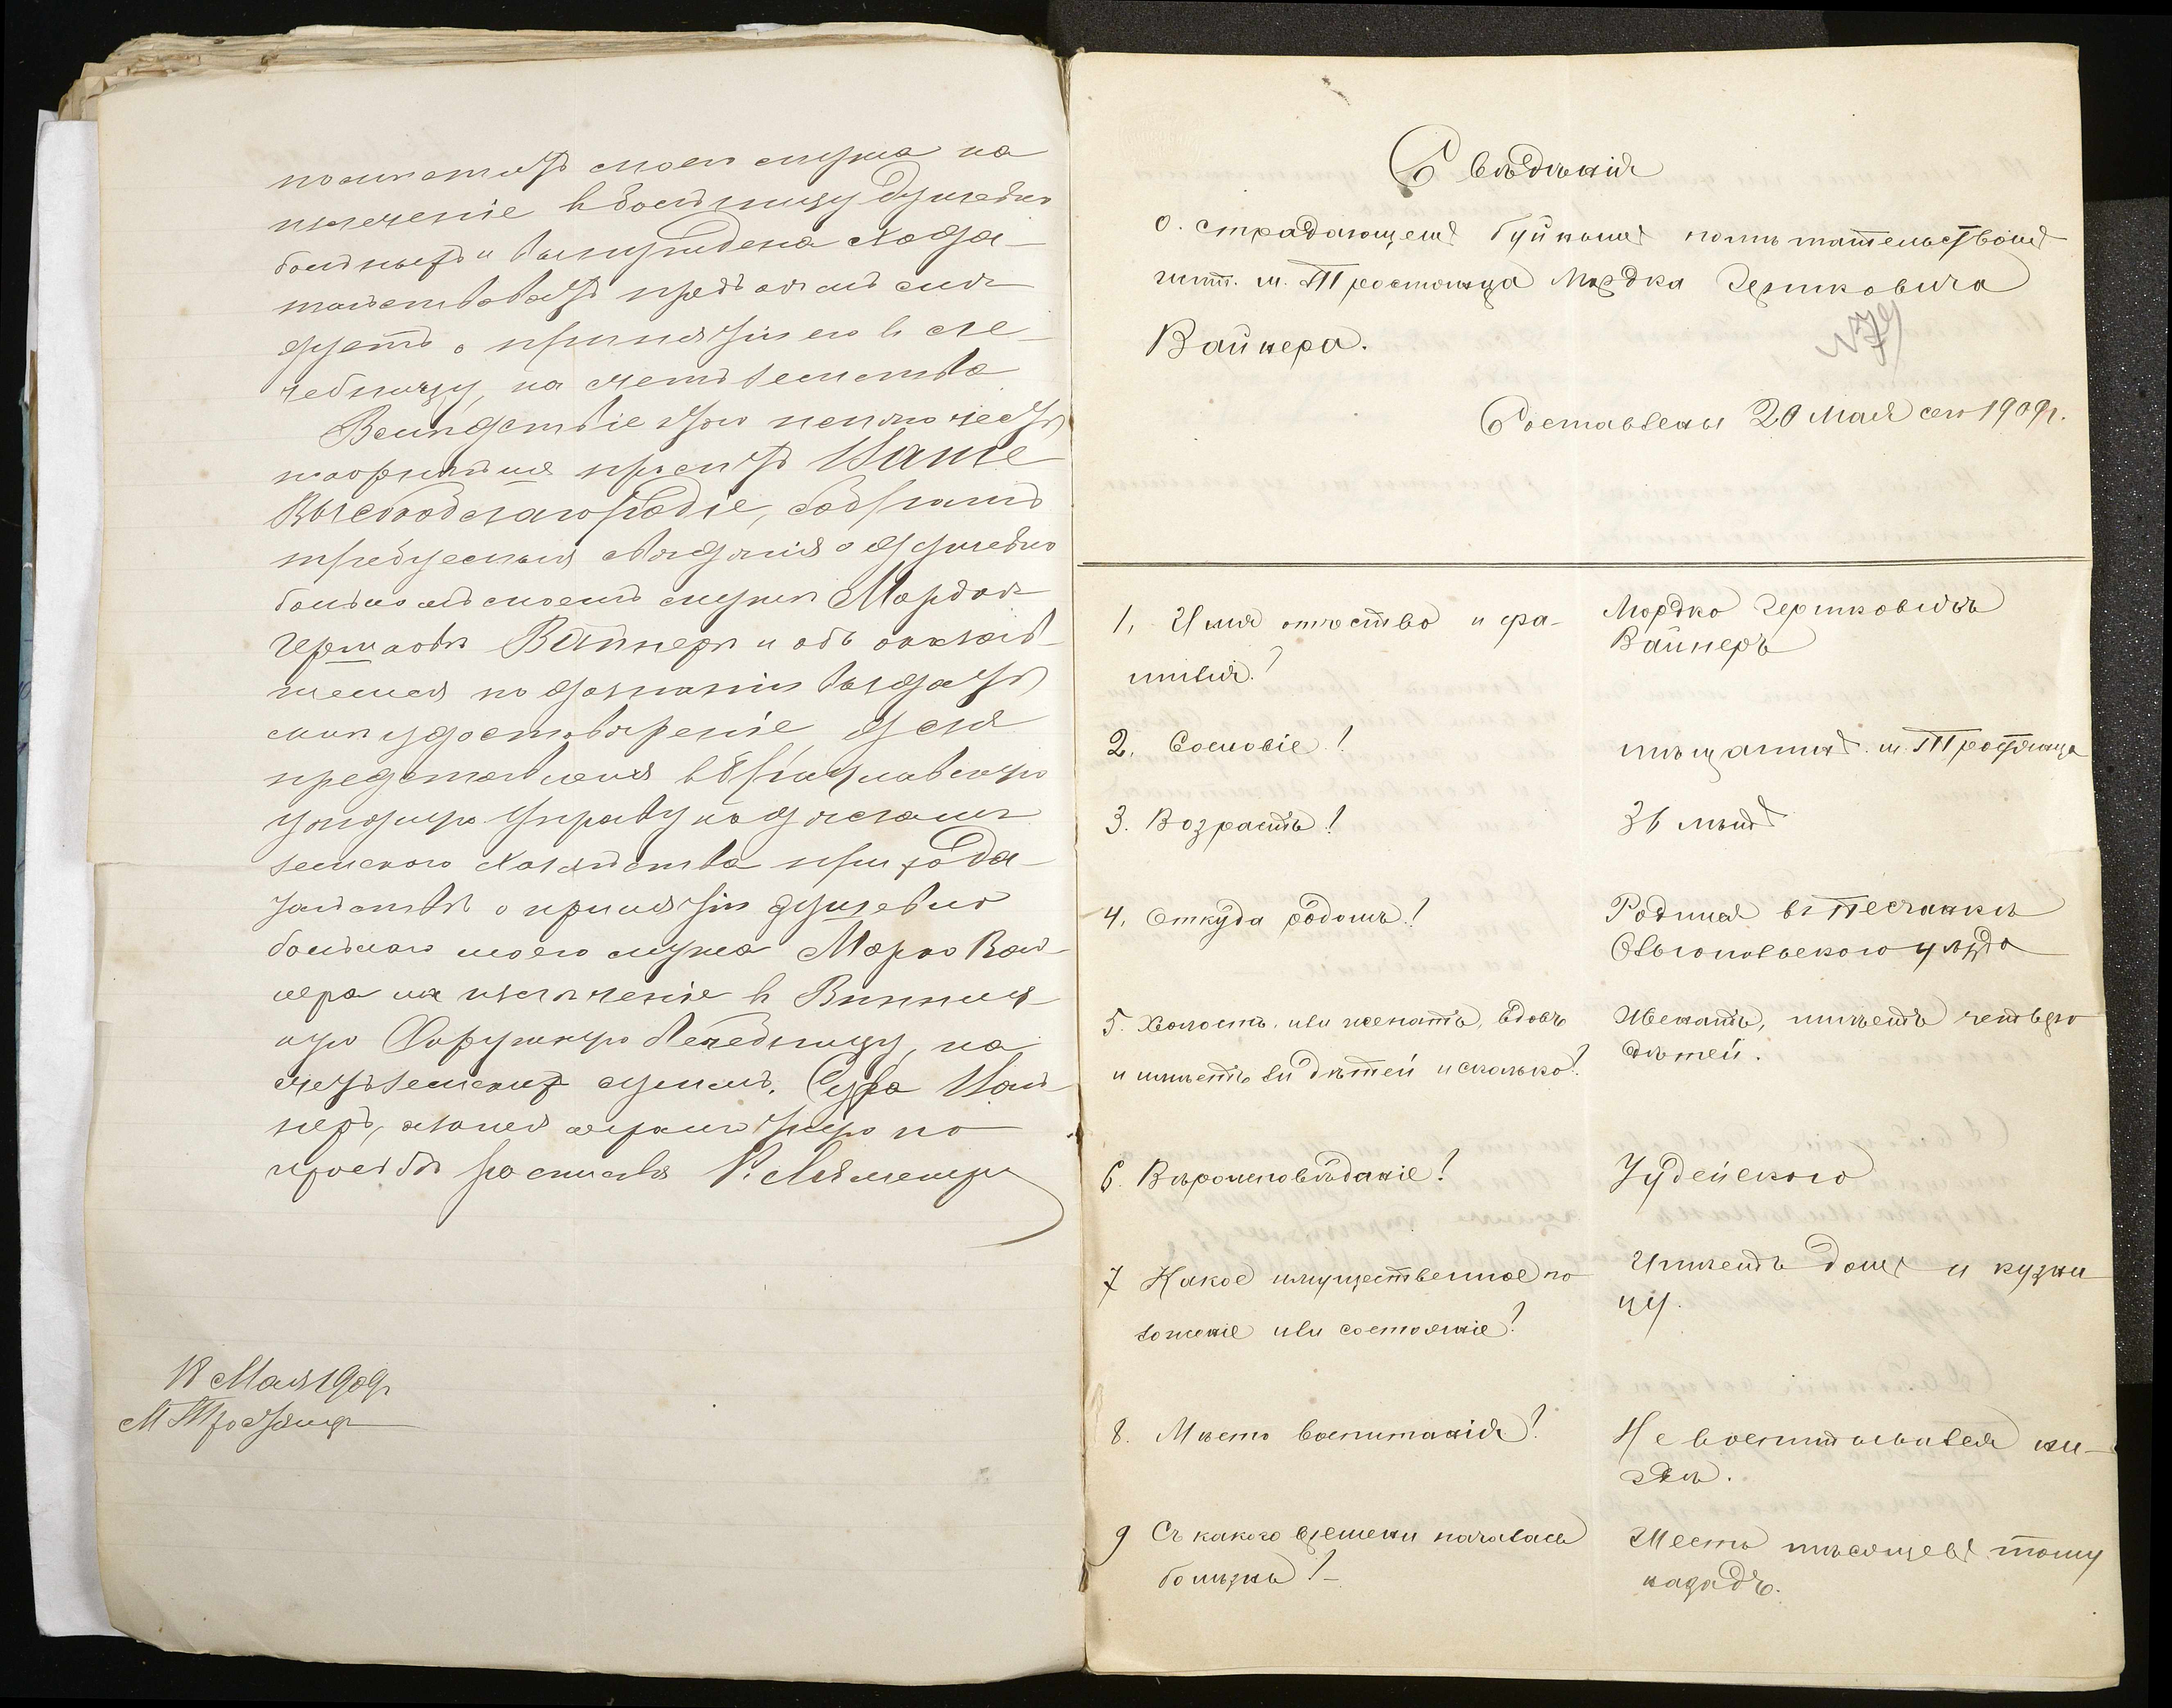 помѣстить моего мужа на
излеченіе в больницу душевно
больныхъ и вынуждена хода-
тайствовать предъ кѣмъ слѣ-
дуетъ о принятіи его в ле-
чебницу, на счетъ земства
Вслѣдствіе чего имѣю честь
покорнѣйше просить Ваше
Высокоблагородіе, собравъ
требуемыя свѣдѣнія о душевно
больномъ моемъ мужѣ Мордкѣ
Гершковѣ Вайнерѣ и объ оказав-
шемся по дознанію выдать
мнѣ удостовѣреніе для
представленія в Брацлавскую
уѣздную Управу по дѣламъ
земского хозяйства при хода-
тайствѣ о принятіи душевно
больного моего мужа Морко Вай-
нера на излѣченіе в Винниц-
кую Окружную Лечебницу, на
счетъ земскихъ суммъ. Сура Вай-
неръ, а за нея неграмотную по
просьбѣ росписался
18 Мая 1909 г
М Тростянец
Свѣдѣнія
о страдающемъ буйнымъ помѣшательствомъ
жит. м. Тростянца Мордка Гершковича
Вайнера.
N 79
Составлены 20 Мая сего 1909 г.
1, Имя отчество и фа-
милія?
Мордко Гершковичъ
Вайнеръ
2. Сословіе?
мѣщанинъ м. Тростянца
3. Возрастъ?
36 лѣтъ
4, Откуда родомъ?
Родился въ Песчанкѣ
Ольгопольского уѣзда
5. Холостъ, или женатъ, вдовъ
и имѣетъ ли дѣтей и сколько?
Женатъ, имѣетъ четверо
дѣтей.
6. Вѣроисповѣданіе?
Іудейского
7 Какое имущественное по
ложеніе или состояніе?
Имѣетъ домъ и кузни
цу.
8. Мѣсто воспитанія?
Не воспитывался ни-
гдѣ.
9 Съ какого времени началась
болѣзнь?
Шесть мѣсяцевъ тому
назадъ.